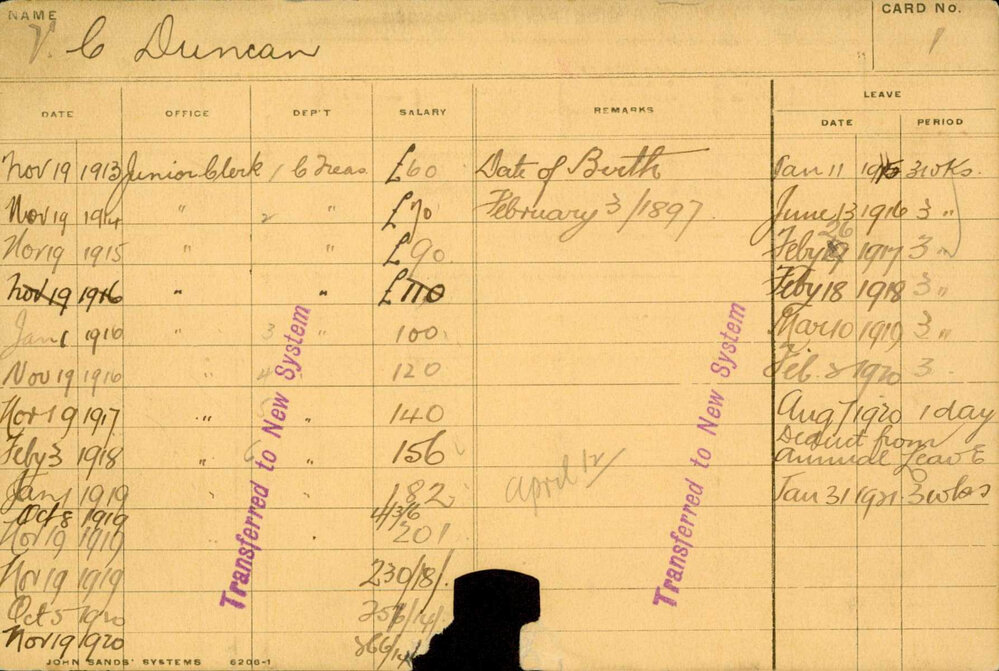 NAME
V. C Duncan
CARD No.
1
DATE OFFICE DEP'T SALARY REMARKS LEAVE
DATE PERIOD
Nov 19 1913 Junior Clerk 1 C Treas. £60 Date of Birth Jan 11 1915 3 wks.
Nov 19 1914 " 2 " £70 February 3/1897 June 13 1916 3 "
Nov 19 1915 " " £90 Feby 26 1917 3 "
Nov 19 1916 " " £110 Feby 18 1918 3 "
Jan 1 1916 " 3 " 100 Mar 10 1919 3 "
Nov 19 1916 " 4 " 120 Feb. 1920 3
Nov 19 1917 " " 140 Aug 7 1920 1 day
Deduct from
Feby 3 1918 " 6 " 156 annual Leave
april 12/
Jany 1 1919 " " 182 Jan 31 1921 3 wks
Oct 8 1919 4/3/6
Nov 19 1919 201
Nov 19 1919 230/18/.
Oct 5 1920
Nov 19 1920
Transferred to New System
Transferred to New System
JOHN SANDS' SYSTEMS 6206-1